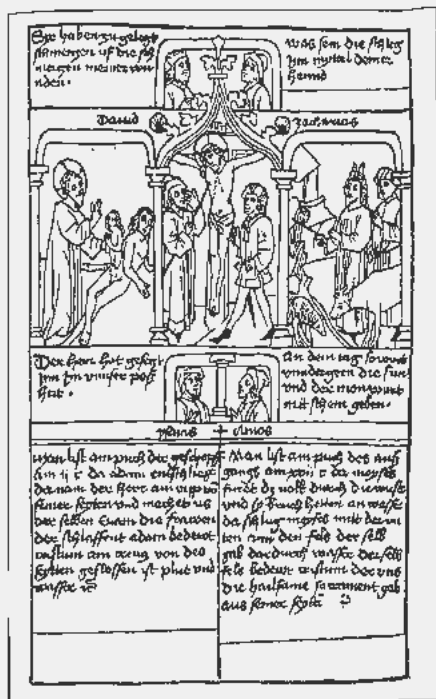 Sye haben zu gelegt
schmerczen uf die sch
mertzen meiner wun
den.
was sein die schleg
Im mittel deiner
hennd
David
zacharias
Der herr hat gelegt
Im In unser poß
heit.
An dem tag so wirt
undergeen die sun
und der mon wirt
nit schein geben.
ysaias
Amos
Man list am puch der geschopff
Am ii c da adam entschlieff
da nam der herr ain ripp von
seiner seyten und machet us
der selben Euam die frawen
der schlaffent adam bedeut
cristum am creutz von des
seyten geflossen ist plut und
wasser
Man list am puch des aus
gangs am xvii c da moyses
furdt dz volk durch die wiest
und sy hetten an wasser
da schlug moyses mit der ru
ten ann den fels der selb
gab dardurch wasser der selb
fels bedeut cristum der uns
die hailsame sacrament gab
aus seiner seyten